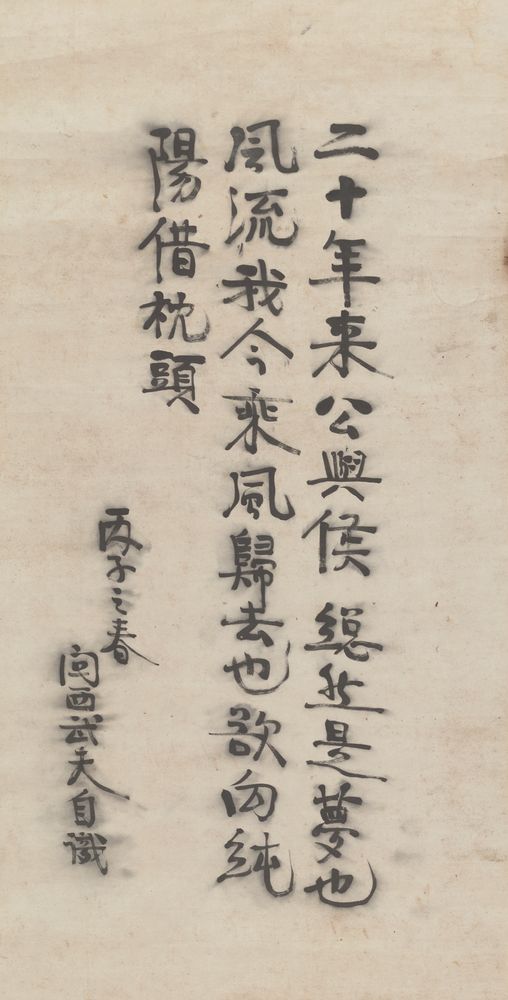 二十年来公與侯縱然是夢也
風流我今乘風歸去也欲向純
陽借枕頭
丙子之春
向西武夫自識